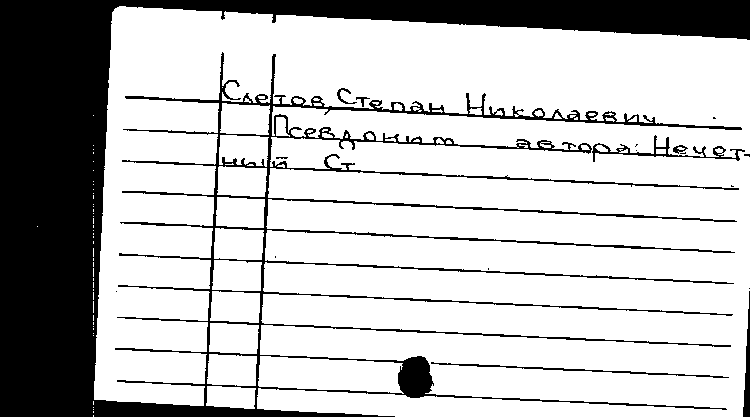 Слетов, Степан Николаевич
Псевдоним автора: Нечет-
ный Ст